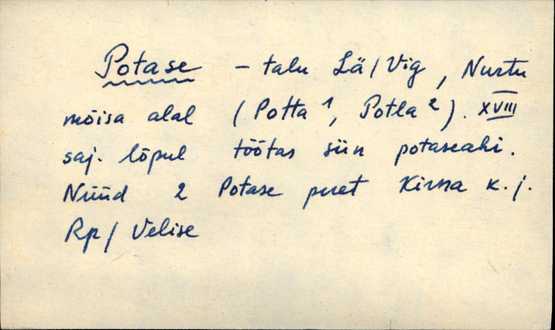 Potase – talu Lä/Vig, Nurtu
mõisa alal (Potta¹, Potla²). XVIII
saj. lõpul töötas siin potaseahi.
Nüüd 2 Potase peret Kirna k. j.
Rp/Velise